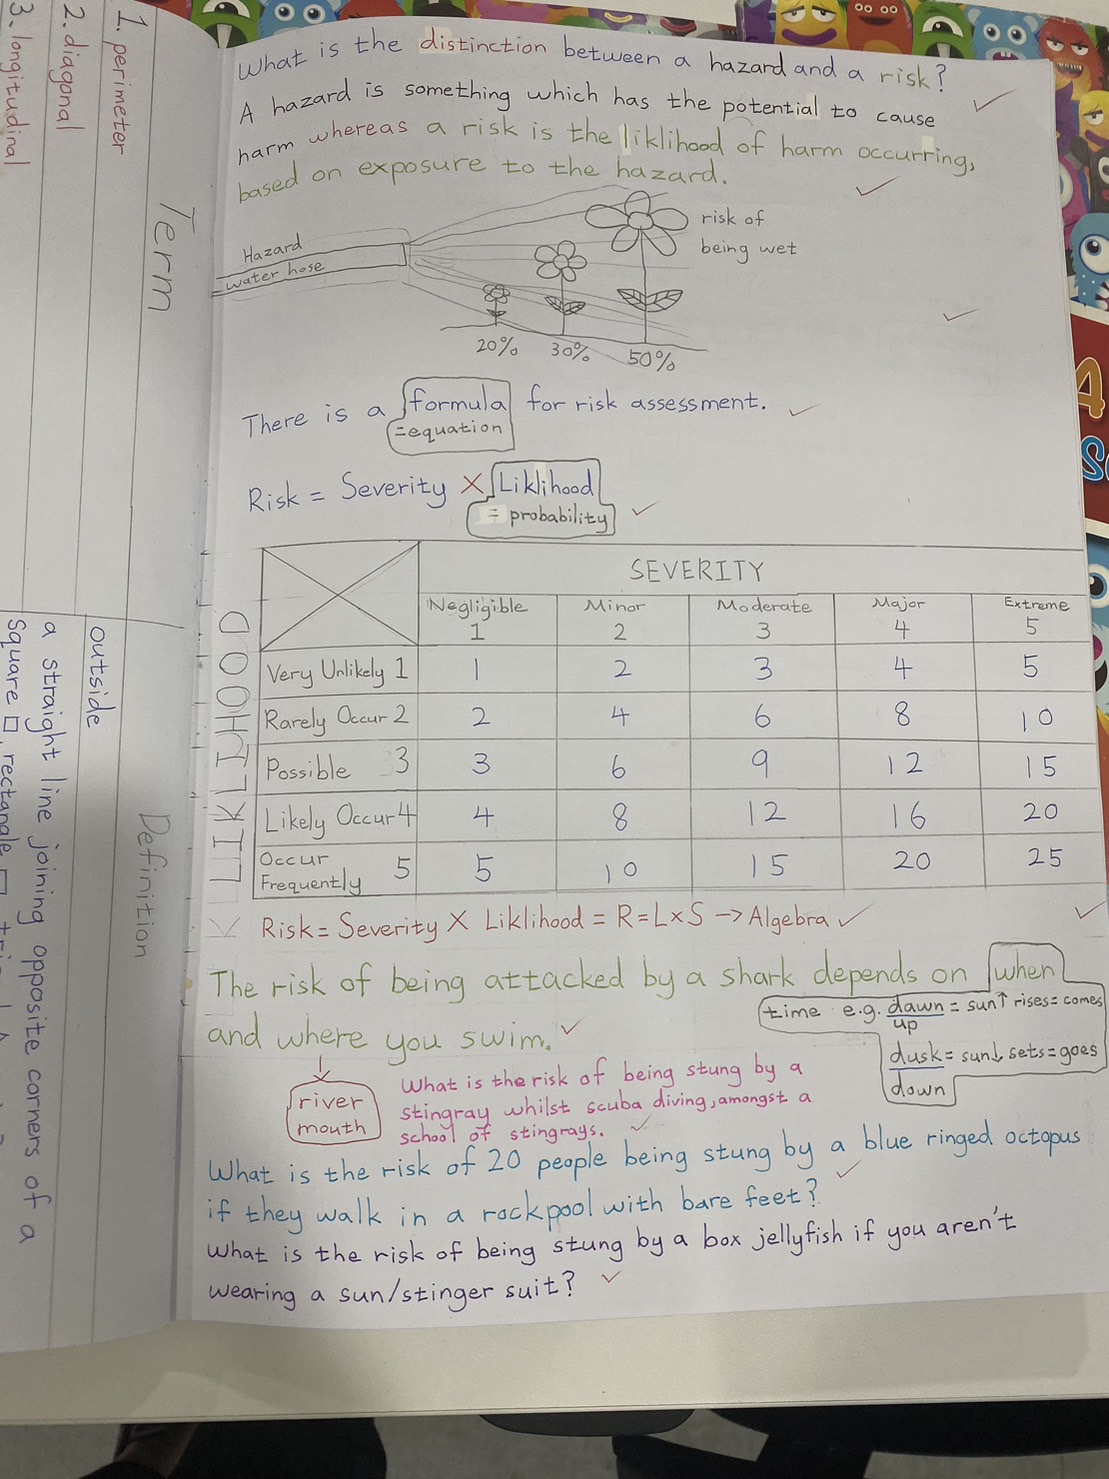 What is the distinction between a hazard and a risk?
A hazard is something which has the potential to cause
harm whereas a risk is the liklihood of harm occurring,
based on exposure to the hazard.
Hazard
water hose
risk of
being wet
20% 30% 50%
There is a formula for risk assessment.
=equation
Risk = Severity X Liklihood
= probability
SEVERITY
Negligible Minor Moderate Major Extreme
1 2 3 4 5
LIKLIHOOD
Very Unlikely 1 1 2 3 4 5
Rarely Occur 2 2 4 6 8 10
Possible 3 3 6 9 12 15
Likely Occur 4 4 8 12 16 20
Occur
Frequently 5 5 10 15 20 25
Risk = Severity X Liklihood = R=L×S → Algebra
The risk of being attacked by a shark depends on when
time e.g. dawn = sun↑ rises = comes
up
and where you swim.
dusk = sun↓ sets = goes
down
river
mouth
What is the risk of being stung by a
stingray whilst scuba diving, amongst a
school of stingrays.
What is the risk of 20 people being stung by a blue ringed octopus
if they walk in a rockpool with bare feet?
What is the risk of being stung by a box jellyfish if you aren't
wearing a sun/stinger suit?
Term
Definition
1. perimeter
outside
2. diagonal
a straight line joining opposite corners of a
square □, rectangle □
3. longitudinal
A